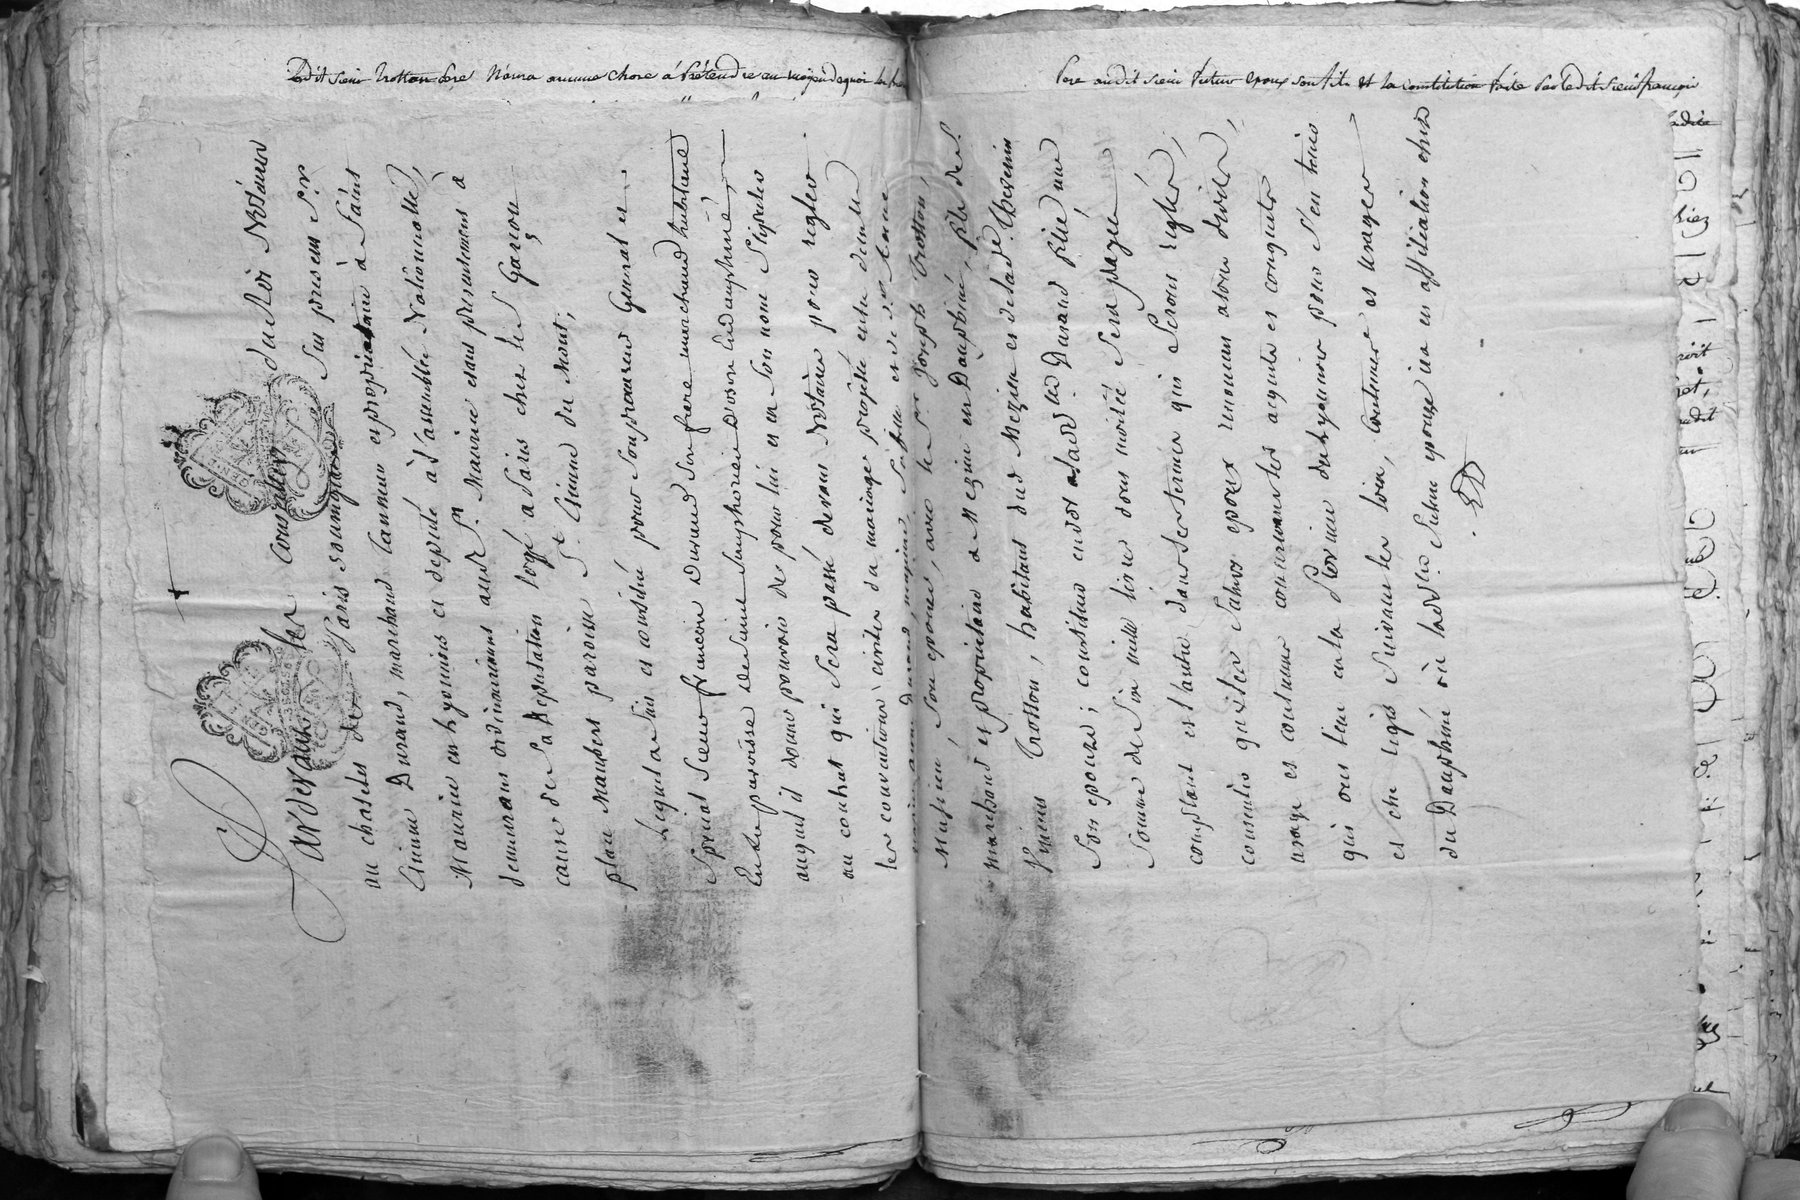 Ledit sieur Trotton Pere N'aura aucune chose à Prétendre au moyen de quoi la
Pere audit sieur futur epoux son fils et la constitution faite Par ledit sieur françois
Pardevant les Conseillers du Roi Notaires
au chatelet de Paris soussignés Fut présent Sr
Etienne Durand, marchand Tanneur et propriétaire à Saint
Maurice en Lyonnois et député à l'assemblée Nationnalle,
demeurant ordinairement audt St Maurice etant presentement à
cause de sa Députation logé à Paris chez le Sr Garson
place Maubert paroisse St Etienne du Mont;
Lequel a fait et constitué pour son procureur General et
Special Sieur françois Durand son frere marchand habitant
En la paroisse de Saint Simphorien D'ozon En dauphiné,
auquel il donne pouvoir de pour lui et en son nom Stipuler
au contrat qui Sera passé devant Notaires pour regler
les conventions civiles du mariage projetté entre demlle
Durand, majeure, Sa fille et de
Meunier, son epouse, avec le Sr Joseph Trotton,
marchand et propriétaire a Mezin en Dauphiné, fils de S.
Vincent Trotton, habitant dud Mezin et de lade. Thevenin
Son epouze; constituer en dot a lade dlle Durand fille une
Somme de Six mille livres dont moitié Sera payée
comptant et l'autre dans les termes qui Seront réglés,
consentir que les futurs epoux renoncent a tous droits,
usage et coutume concernant les acquets et conquets
qui ont lieu en la Province du Lyonnois pour s'en tenir
et etre régis Suivant les loix, coutumes et usages
du Dauphiné où lade dlle future epouze ira en affiliation chez